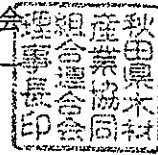 会
秋田県木材
産業協同
組合連合会
理事長印